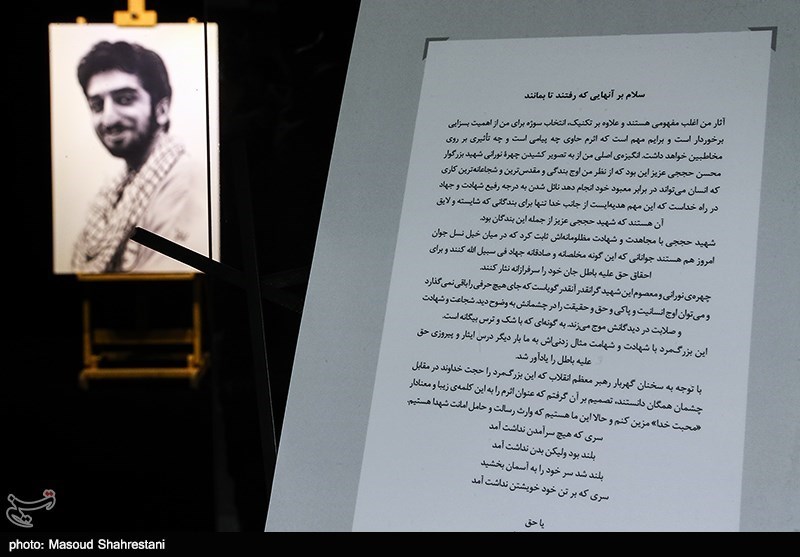 سلام بر آنهایی که رفتند تا بمانند
آثار من اغلب مفهومی هستند و علاوه بر تکنیک، انتخاب سوژه برای من از اهمیت بسزایی
برخوردار است و برایم مهم است که اثرم حاوی چه پیامی است و چه تأثیری بر روی
مخاطبین خواهد داشت. انگیزه‌ی اصلی من از به تصویر کشیدن چهرهٔ نورانی شهید بزرگوار
محسن حججی عزیز این بود که از نظر من اوج بندگی و مقدس‌ترین و شجاعانه‌ترین کاری
که انسان می‌تواند در برابر معبود خود انجام دهد نائل شدن به درجه رفیع شهادت و جهاد
در راه خداست که این مهم هدیه‌ایست از جانب خدا تنها برای بندگانی که شایسته و لایق
آن هستند که شهید حججی عزیز از جمله این بندگان بود.
شهید حججی با مجاهدت و شهادت مظلومانه‌اش ثابت کرد که در میان خیل نسل جوان
امروز هم هستند جوانانی که این گونه مخلصانه و صادقانه جهاد فی سبیل الله کنند و برای
احقاق حق علیه باطل جان خود را سرفرازانه نثار کنند.
چهره‌ی نورانی و معصوم این شهید گرانقدر آنقدر گویاست که جای هیچ حرفی را باقی نمی‌گذارد
و می‌توان اوج انسانیت و پاکی و حق و حقیقت را در چشمانش به وضوح دید. شجاعت و شهادت
و صلابت در دیدگانش موج می‌زند، به گونه‌ای که با شک و ترس بیگانه است.
این بزرگ‌مرد با شهادت و شهامت مثال زدنی‌اش به ما بار دیگر درس ایثار و پیروزی حق
علیه باطل را یادآور شد.
با توجه به سخنان گهربار رهبر معظم انقلاب که این بزرگ‌مرد را حجت خداوند در مقابل
چشمان همگان دانستند، تصمیم بر آن گرفتم که عنوان اثرم را به این کلمه‌ی زیبا و معنادار
«محبت خدا» مزین کنم و حالا این ما هستیم که وارث رسالت و حامل امانت شهدا هستیم.
سری که هیچ سرآمدن نداشت آمد
بلند بود ولیکن بدن نداشت آمد
بلند شد سر خود را به آسمان بخشید
سری که بر تن خود خویشتن نداشت آمد
یا حق
تسنیم
photo: Masoud Shahrestani